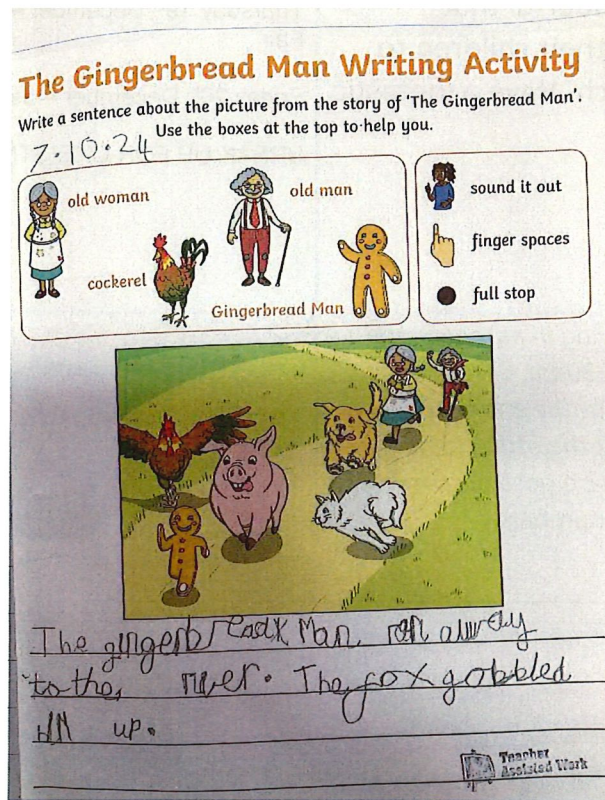 The Gingerbread Man Writing Activity
Write a sentence about the picture from the story of 'The Gingerbread Man'.
Use the boxes at the top to help you.
7.10.24
old woman
old man
cockerel
Gingerbread Man
sound it out
finger spaces
full stop
The gingerb Man ran away
to the river. The fox gobbled
up.
Teacher
Assisted Work